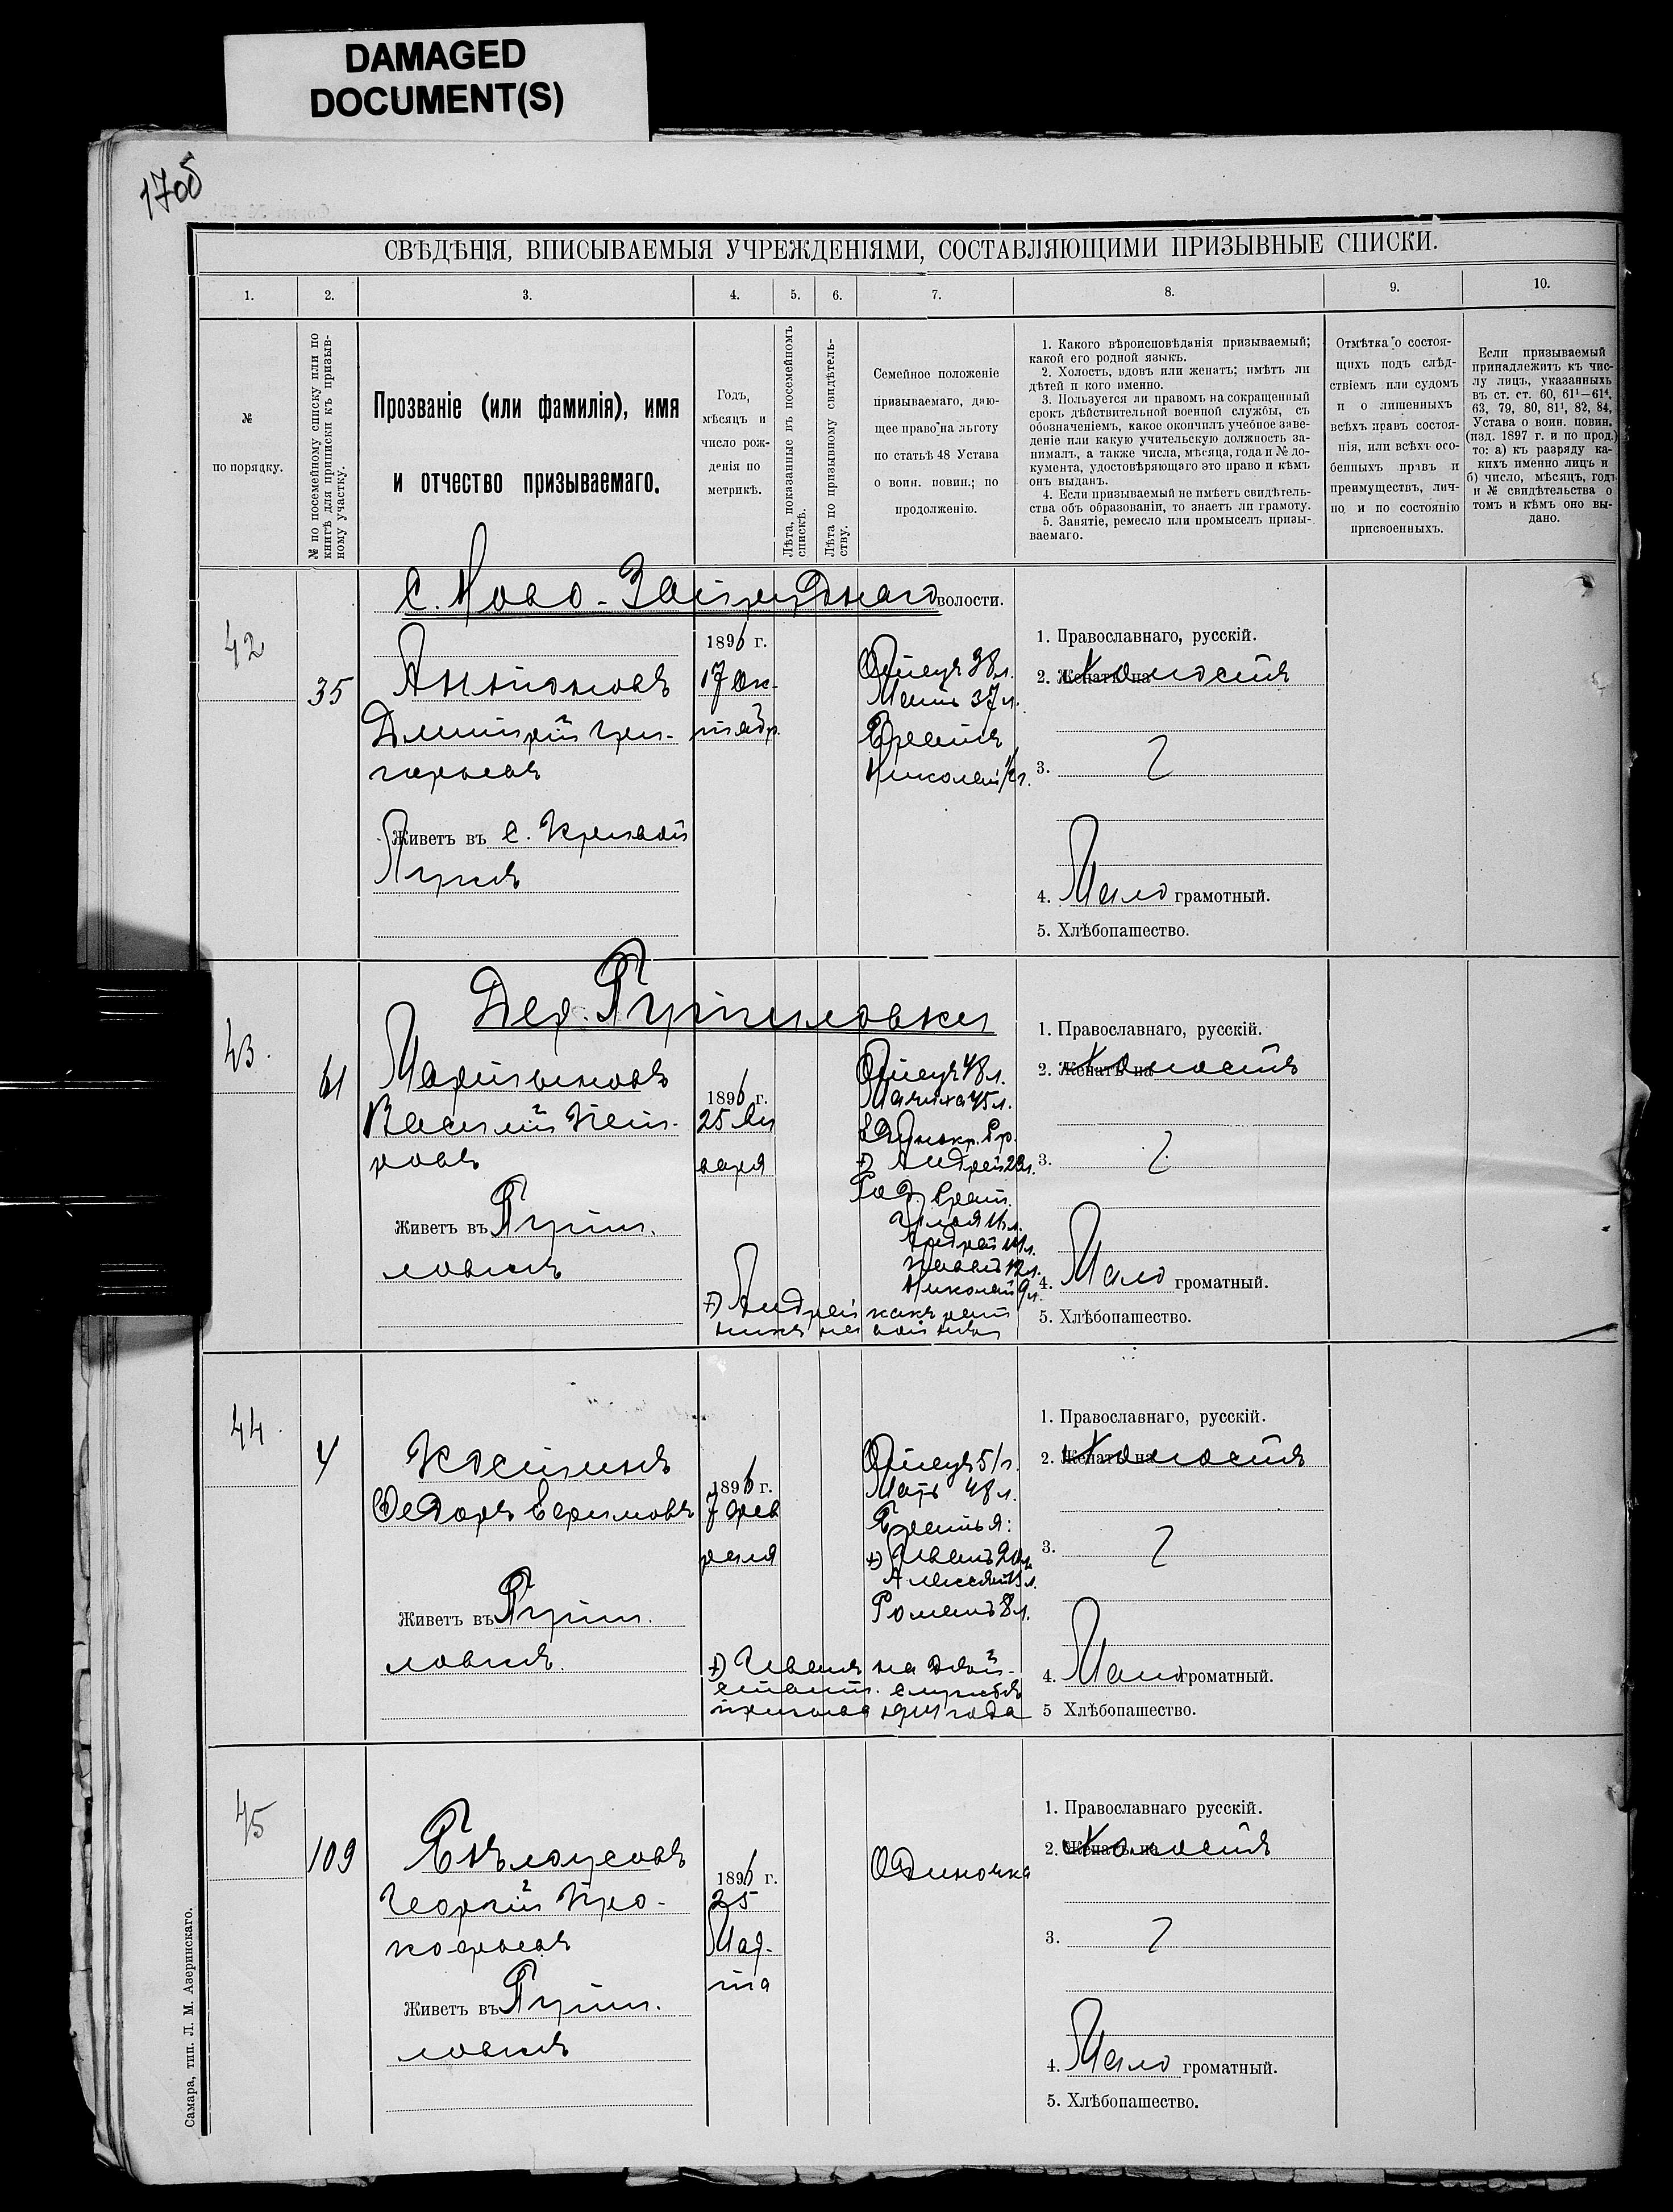 DAMAGED
DOCUMENT(S)
СВѢДѢНІЯ, ВПИСЫВАЕМЫЯ УЧРЕЖДЕНІЯМИ, СОСТАВЛЯЮЩИМИ ПРИЗЫВНЫЕ СПИСКИ.
1.
2.
3.
4.
5.
6.
7.
8.
9.
10.
№
по порядку.
№ по посемейному списку или по
книгѣ для приписки къ призыв-
ному участку.
Прозваніе (или фамилія), имя
и отчество призываемаго.
Годъ,
мѣсяцъ и
число рож-
денія по
метрикѣ.
Лѣта, показанные въ посемейномъ
спискѣ.
Лѣта по призывному свидѣтель-
ству.
Семейное положеніе
призываемаго, даю-
щее право на льготу
по статьѣ 48 Устава
о воин. повин.; по
продолженію.
1. Какого вѣроисповѣданія призываемый;
какой его родной языкъ.
2. Холостъ, вдовъ или женатъ; имѣтъ ли
дѣтей и кого именно.
3. Пользуется ли правомъ на сокращенный
срокъ дѣйствительной военной службы, съ
обозначеніемъ, какое окончилъ учебное заве-
деніе или какую учительскую должность за-
нималъ, а также числа, мѣсяца, года и № до-
кумента, удостовѣряющаго это право и кѣмъ
онъ выданъ.
4. Если призываемый не имѣетъ свидѣтель-
ства объ образованіи, то знаетъ ли грамоту.
5. Занятіе, ремесло или промыселъ призы-
ваемаго.
Отмѣтка о состоя-
щихъ подъ слѣд-
ствіемъ или судомъ
и о лишенныхъ
всѣхъ правъ состоя-
нія, или всѣхъ осо-
бенныхъ правъ и
преимуществъ, лич-
но и по состоянію
присвоенныхъ.
Если призываемый
принадлежитъ къ чис-
лу лицъ, указанныхъ
въ ст. ст. 60, 61¹—61⁴,
63, 79, 80, 81¹, 82, 84,
Устава о воин. повин.
(изд. 1897 г. и по прод.)
то: а) къ разряду ка-
кихъ именно лицъ и
б) число, мѣсяцъ, годъ
и № свидѣтельства о
томъ и кѣмъ оно вы-
дано.
волости.
42
35
Антоновъ
Дмитрій Гри-
горьевъ
Живетъ въ с. Кривой
Лукѣ
1896 г.
17 Ок-
тябр.
Отецъ 38 л.
Мать 37 л.
Братъ
Николай
1. Православнаго, русскій.
2. Женатъ на Холостъ
3.
4. Мало грамотный.
5. Хлѣбопашество.
Дер. Путиловки
43.
61
Мартыновъ
Василій Пет-
ровъ
Живетъ въ Пути-
ловкѣ
1896 г.
25 Ян
варя
Отецъ 48 л.
Мачиха 45 л.
Андрей
Род. брат.
Илья 16 л.
Андрей
Павел 12 л.
Николай 9 л.
+) Андрей какъ рат
никъ на войнѣ
1. Православнаго, русскій.
2. Женатъ на Холостъ
3.
4. Мало громатный.
5. Хлѣбопашество.
44.
4
Костинъ
Ѳедоръ Ефимовъ
Живетъ въ Пути-
ловкѣ.
1896 г.
7 Фев
раля
Отецъ 51 г.
Мать 48 л.
Братья:
+) Иванъ
Алексѣй
Романъ 8 л.
+) Иванъ на дѣй-
ствит. службѣ
призыва 1914 года
1. Православнаго, русскій.
2. Женатъ на Холостъ
3.
4. Мало громатный.
5 Хлѣбопашество.
45
109
Бѣлоусовъ
Георгій Про-
кофьевъ
Живетъ въ Пути-
ловкѣ
1896 г.
25
Мар-
та
Одиночка
1. Православнаго русскій.
2. Женатъ на Холостъ
3.
4. Мало громатный.
5. Хлѣбопашество.
Самара, тип. Л. М. Азеринскаго.